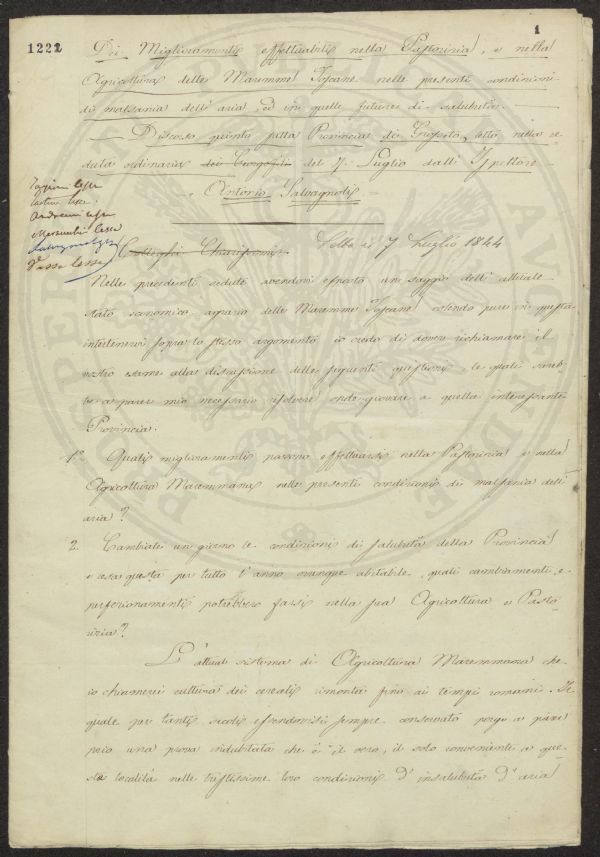 1
1222
Dei Miglioramenti effettuabili nella Pastorizia, e nella
Agricoltura delle Maremme Toscane nelle presenti condizioni
di malsania dell'aria, ed in quelle future di salubrità.
Discorso quinto sulla Provincia di Grosseto, letto nella se-
duta ordinaria dei Georgofili del 7. Luglio dall'Ispettore
Antonio Salvagnoli
Tazzini lesse
Andreucci lesse
Colleghi Chiarissimi. Letta li 7 Luglio 1844
Nelle precedenti sedute avendovi esposto un saggio dell'attuale
stato economico agrario delle Maremme Toscane volendo pure in questa
intertenervi sopra lo stesso argomento io credo di dovere richiamare il
vostro esame alla discussione delle seguenti questioni, le quali sareb-
be a parer mio necessario risolvere onde giovare a quella interessante
Provincia.
1.° Quali miglioramenti possono effettuarsi nella Pastorizia e nella
Agricoltura Maremmana nelle presenti condizioni di malsania dell'
aria?
2. Cambiate un giorno le condizioni di salubrità della Provincia
e resa questa per tutto l'anno ovunque abitabile, quali cambiamenti, e
perfezionamenti potrebbero farsi nella sua Agricoltura e Pasto-
rizia?
L'attual sistema di Agricoltura Maremmana che
io chiamerei cultura dei cereali rimonta fino ai tempi romani. Il
quale per tanti secoli essendovisi sempre conservato porge a parer
mio una prova indubitata che è il vero, il solo conveniente a que-
sta località nelle tristissime loro condizioni d'insalubrità d'aria